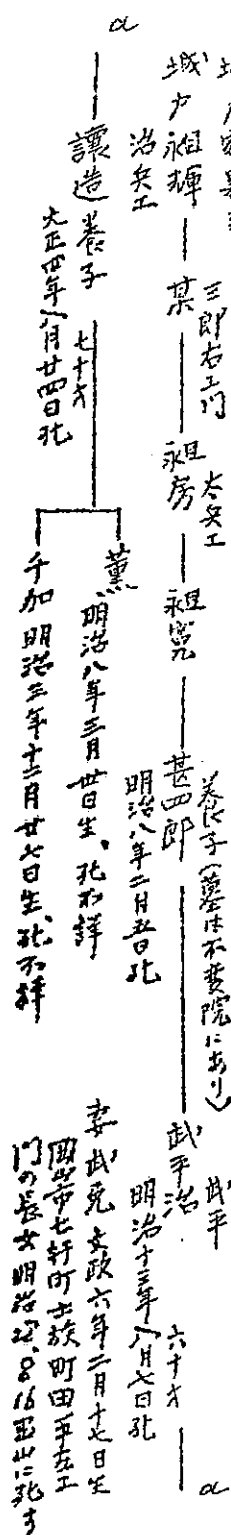 城戸永貞輝
治兵エ
某
三郎右エ門
永貞房
太兵エ
永貞寛
甚四郎
養子（墓は不變院にあり）
明治八年二月五日死
武平治
武平
六十才
明治十三年八月七日死
妻武免 文政六年二月十七日生
岡山市七軒町士族町田平左エ
門の長女明治22、8、16玉山に死す
a
a
讓造 養子
七十才
大正四年八月廿四日死
薫 明治八年三月廿日生、死不詳
千加 明治三年十二月廿七日生、死不詳